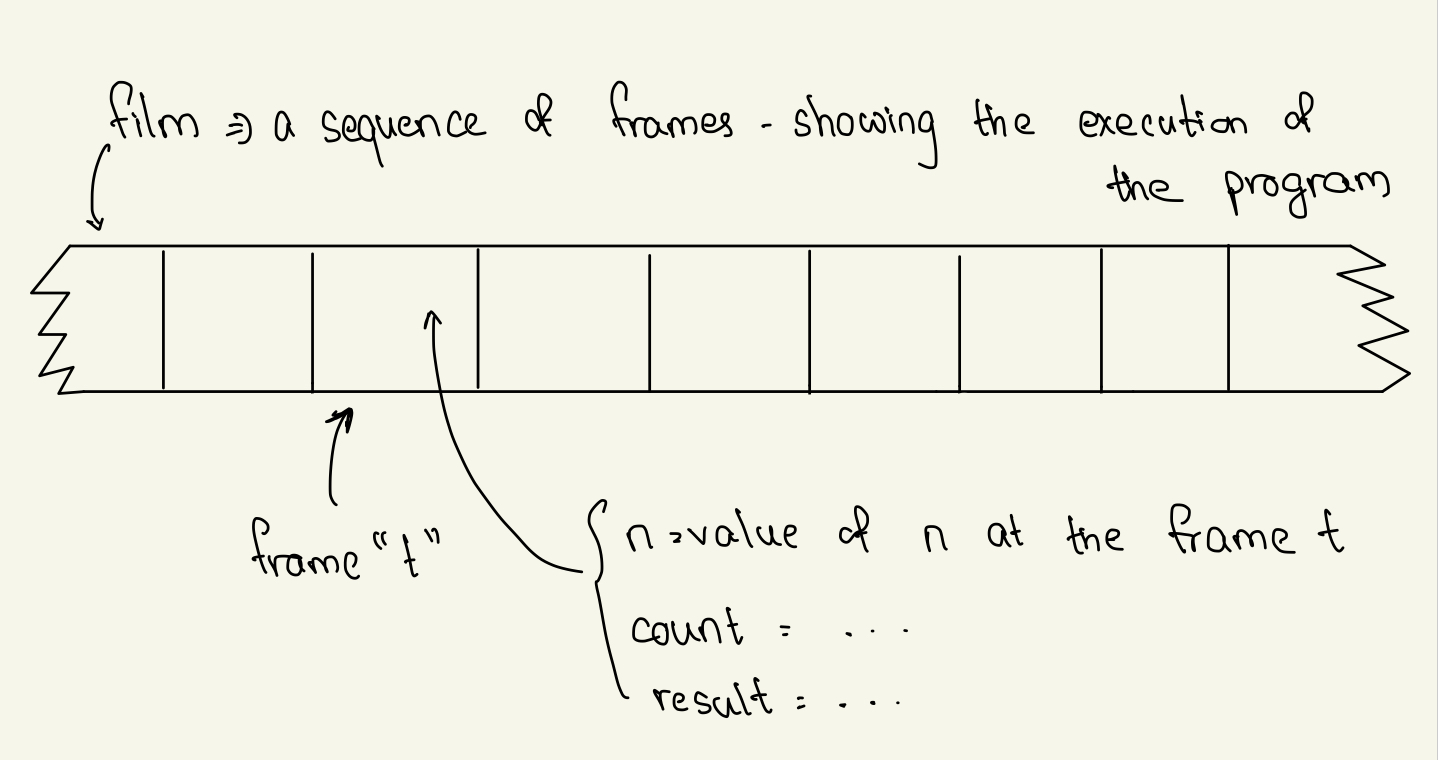 film ⇒ a sequence of frames - showing the execution of
the program
frame "t"
n = value of n at the frame t
count = ...
result = ...